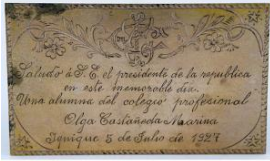 Saludo á S. E. el presidente de la republica
en este memorable dia.
Una alumna del colegio profesional
Olga Castañeda Marina
Iquique 5 de Julio de 1927